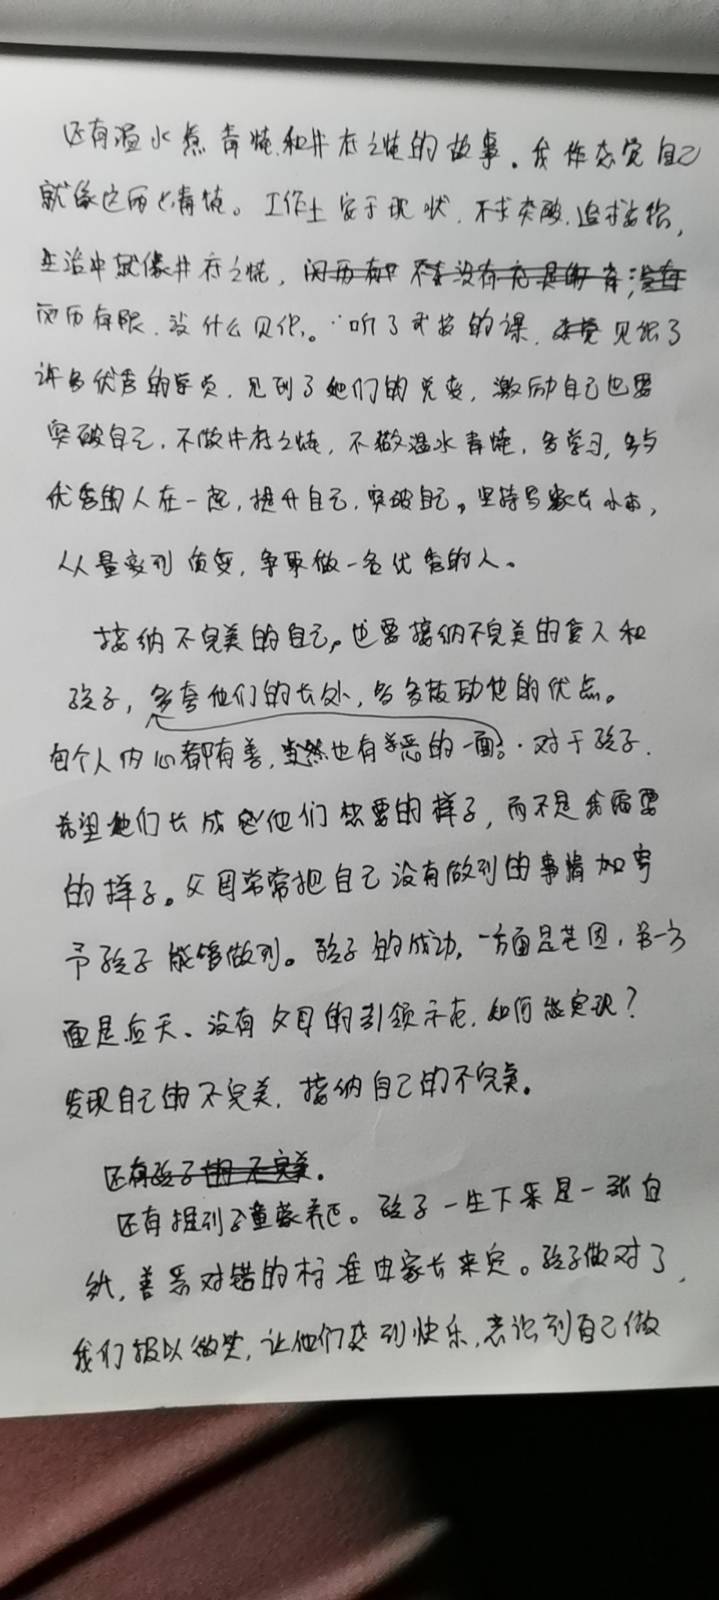 还有温水煮青蛙和井底之蛙的故事。我作感觉自己
就像这两只青蛙。工作上安于现状,不求突破,追求安稳,
生活中就像井底之蛙,
而历有限,没什么见识。听了老师的课,见识了
许多优秀的学员,见到了她们的兑变,激励自己也要
突破自己,不做井底之蛙,不做温水青蛙,多学习,多与
优秀的人在一起,提升自己,突破自己。坚持写家长小本,
从量变到质变,争取做一名优秀的人。
接纳不完美的自己,也要接纳不完美的爱人和
孩子,多夸他们的长处,多多鼓励他的优点。
每个人内心都有善,当然也有恶的一面。对于孩子,
希望他们长成他们想要的样子,而不是我需要
的样子。父母常常把自己没有做到的事情加寄
予孩子能够做到。孩子的成功,一方面是基因,另一方
面是后天、没有父母的引领示范,如何能实现?
发现自己的不完美,接纳自己的不完美。
还有孩子的不完美。
还有提到了童蒙养正。孩子一生下来是一张白
纸,善恶对错的标准由家长来定。孩子做对了,
我们报以微笑,让他们感到快乐,意识到自己做